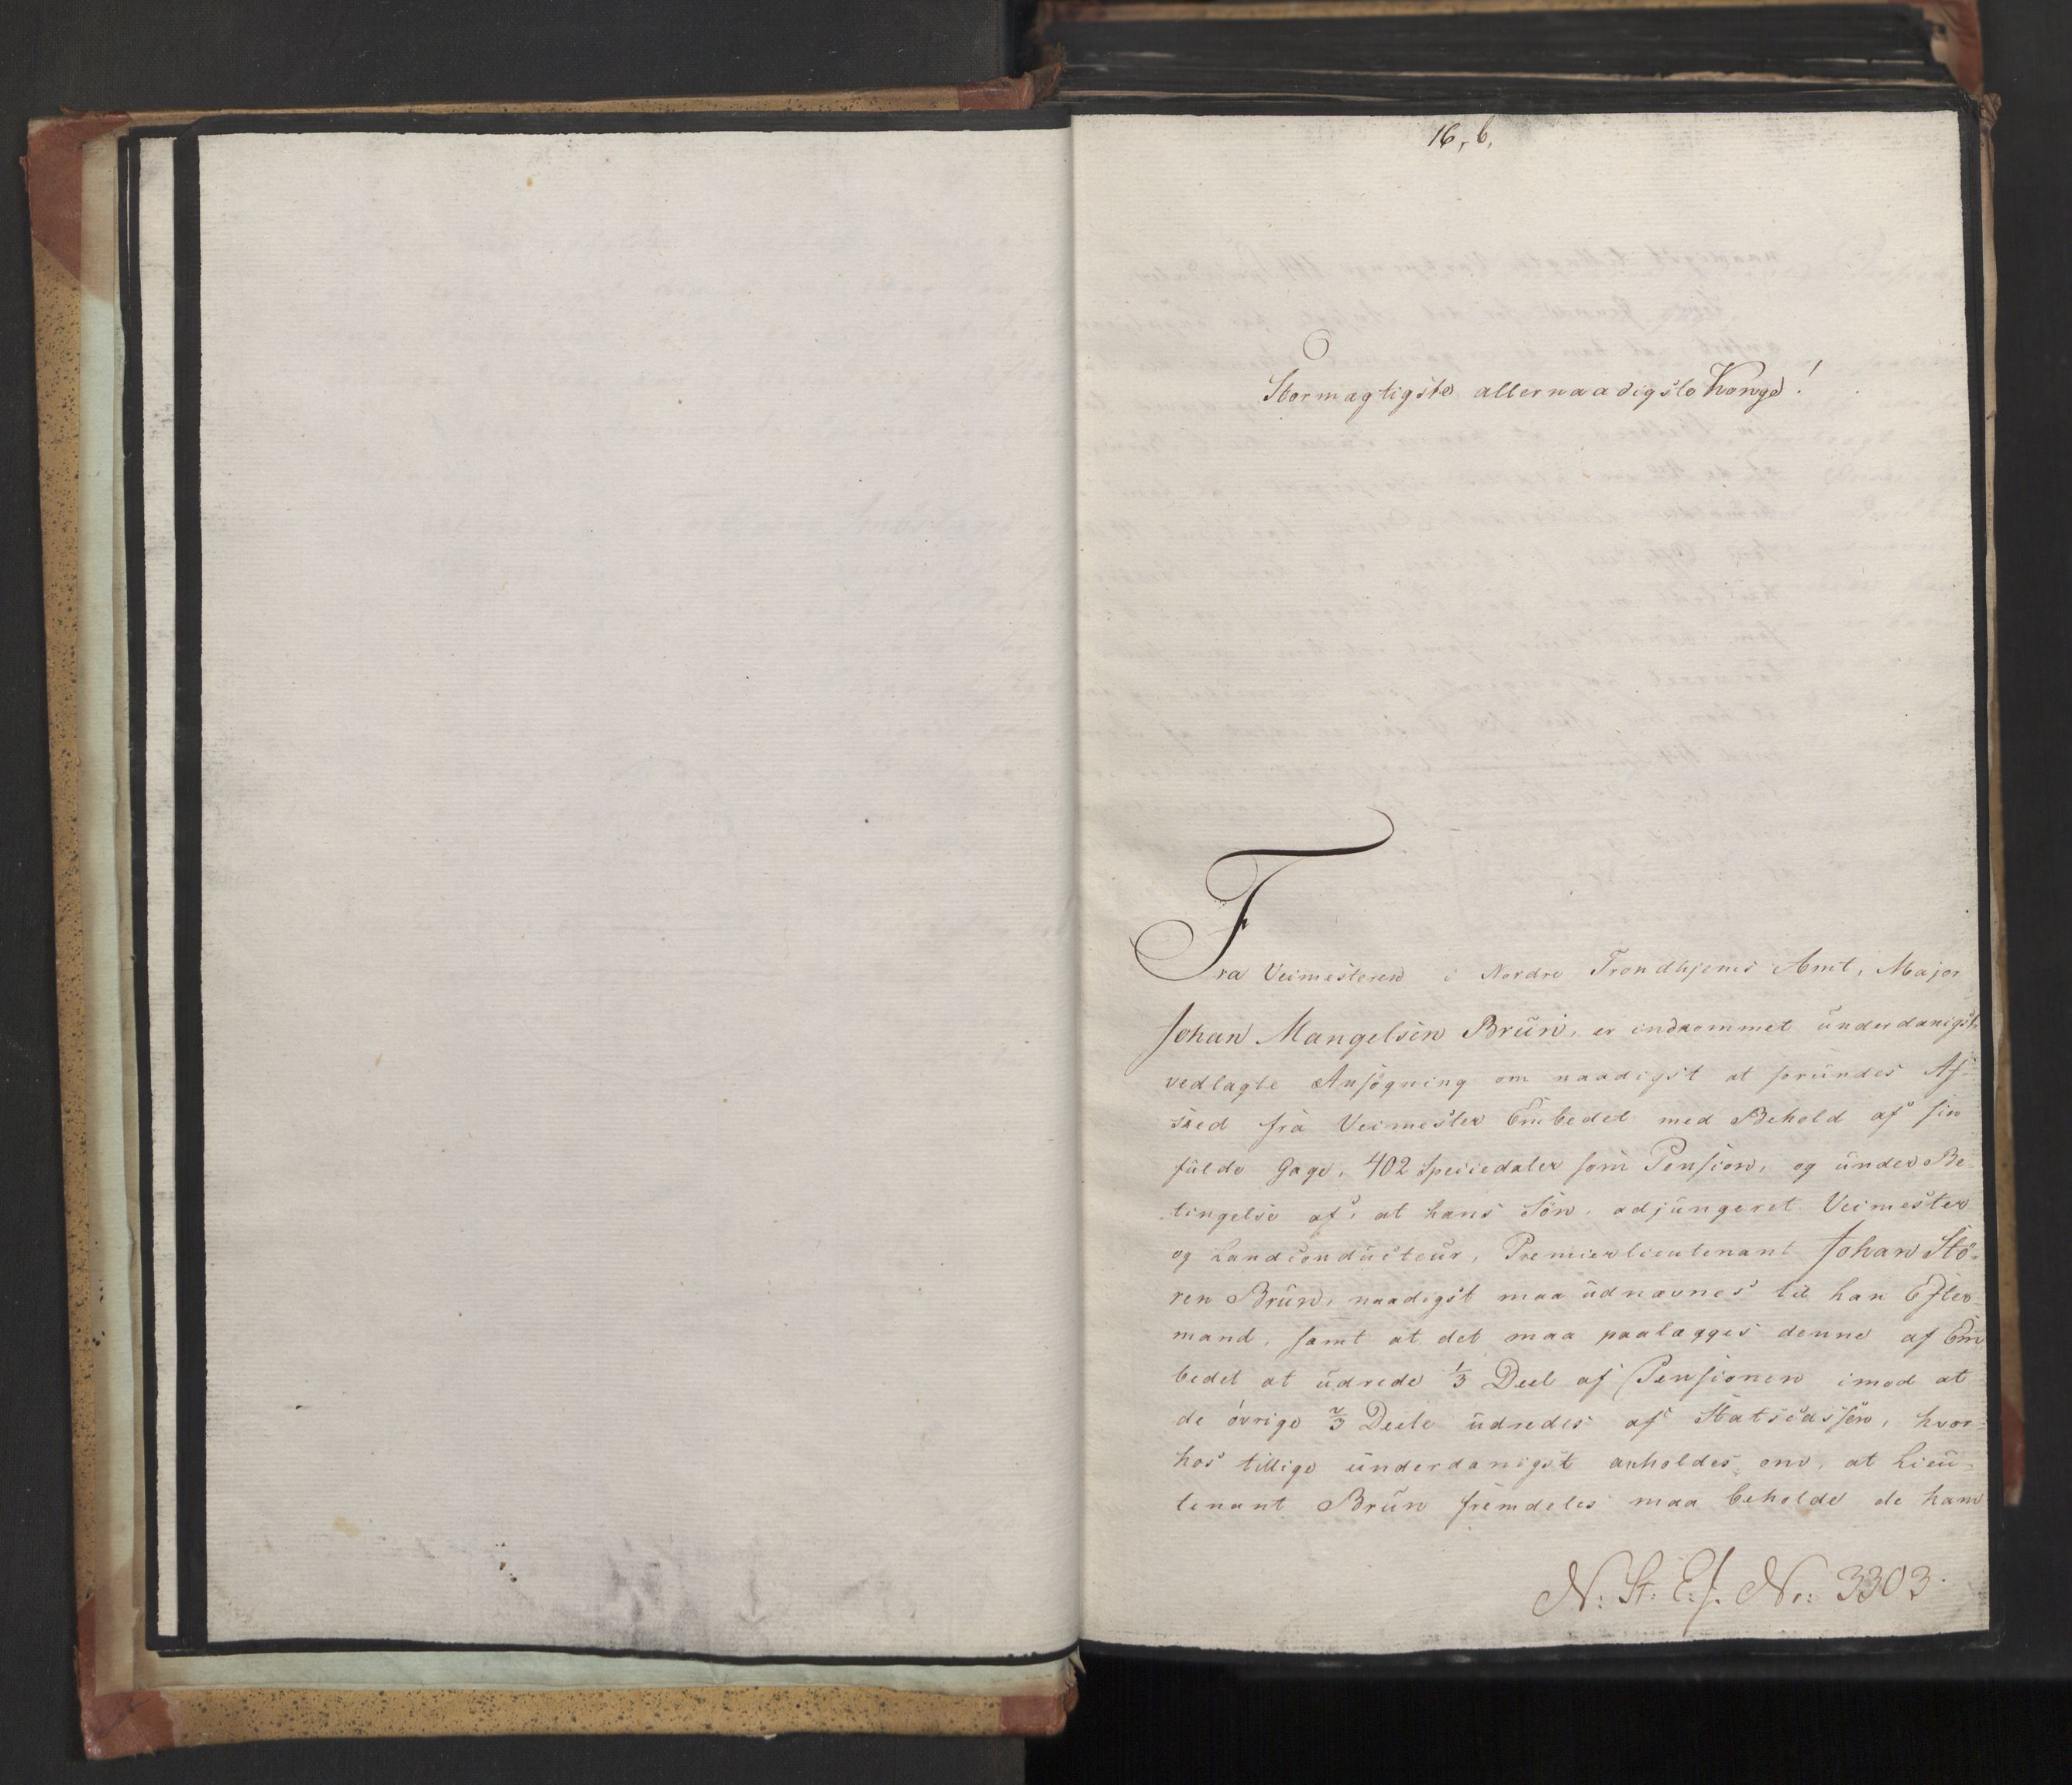 16, b,
Stormægtigste allernaadigste Konge!
Fra Veimesteren i Nordre Trondhjems Amt, Major
Johan Mangelsen Brün, er indkommet ünderdanigst
vedlagte Ansøgning om naadigst at foründes Af-
sked fra Veimester Embedet med Behold af sin
fülde Gage, 402 Speciedaler som Pension, og ünder Be-
tingelse af, at hans Søn, adjüngeret Veimester
og Landcondücteur, Premierlieutenant Johan Stö-
ren Brün, naadigst maa üdnævnes til han Efter-
mand, samt at det maa paalægges denne af Em
bedet at üdrede 1/3 Deel af Pensionen imod at
de övrige 2/3 Deele üdredes af Statscassen, hvor-
hos tillige ünderdanigst anholdes om, at Lieü-
tenant Brün fremdeles maa beholde de ham
N: St: E: J. No: 3303.